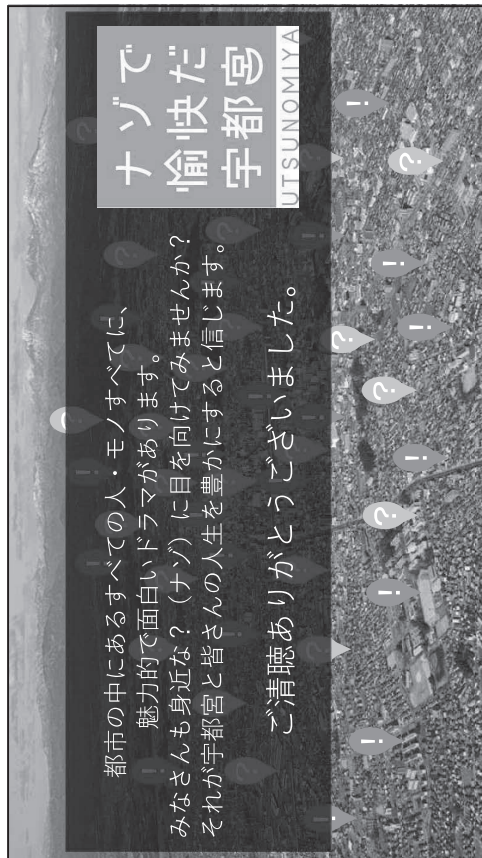 ナゾで
愉快だ
宇都宮
UTSUNOMIYA
都市の中にあるすべての人・モノすべてに、
魅力的で面白いドラマがあります。
みなさんも身近な？（ナゾ）に目を向けてみませんか？
それが宇都宮と皆さんの人生を豊かにすると信じます。
ご清聴ありがとうございました。